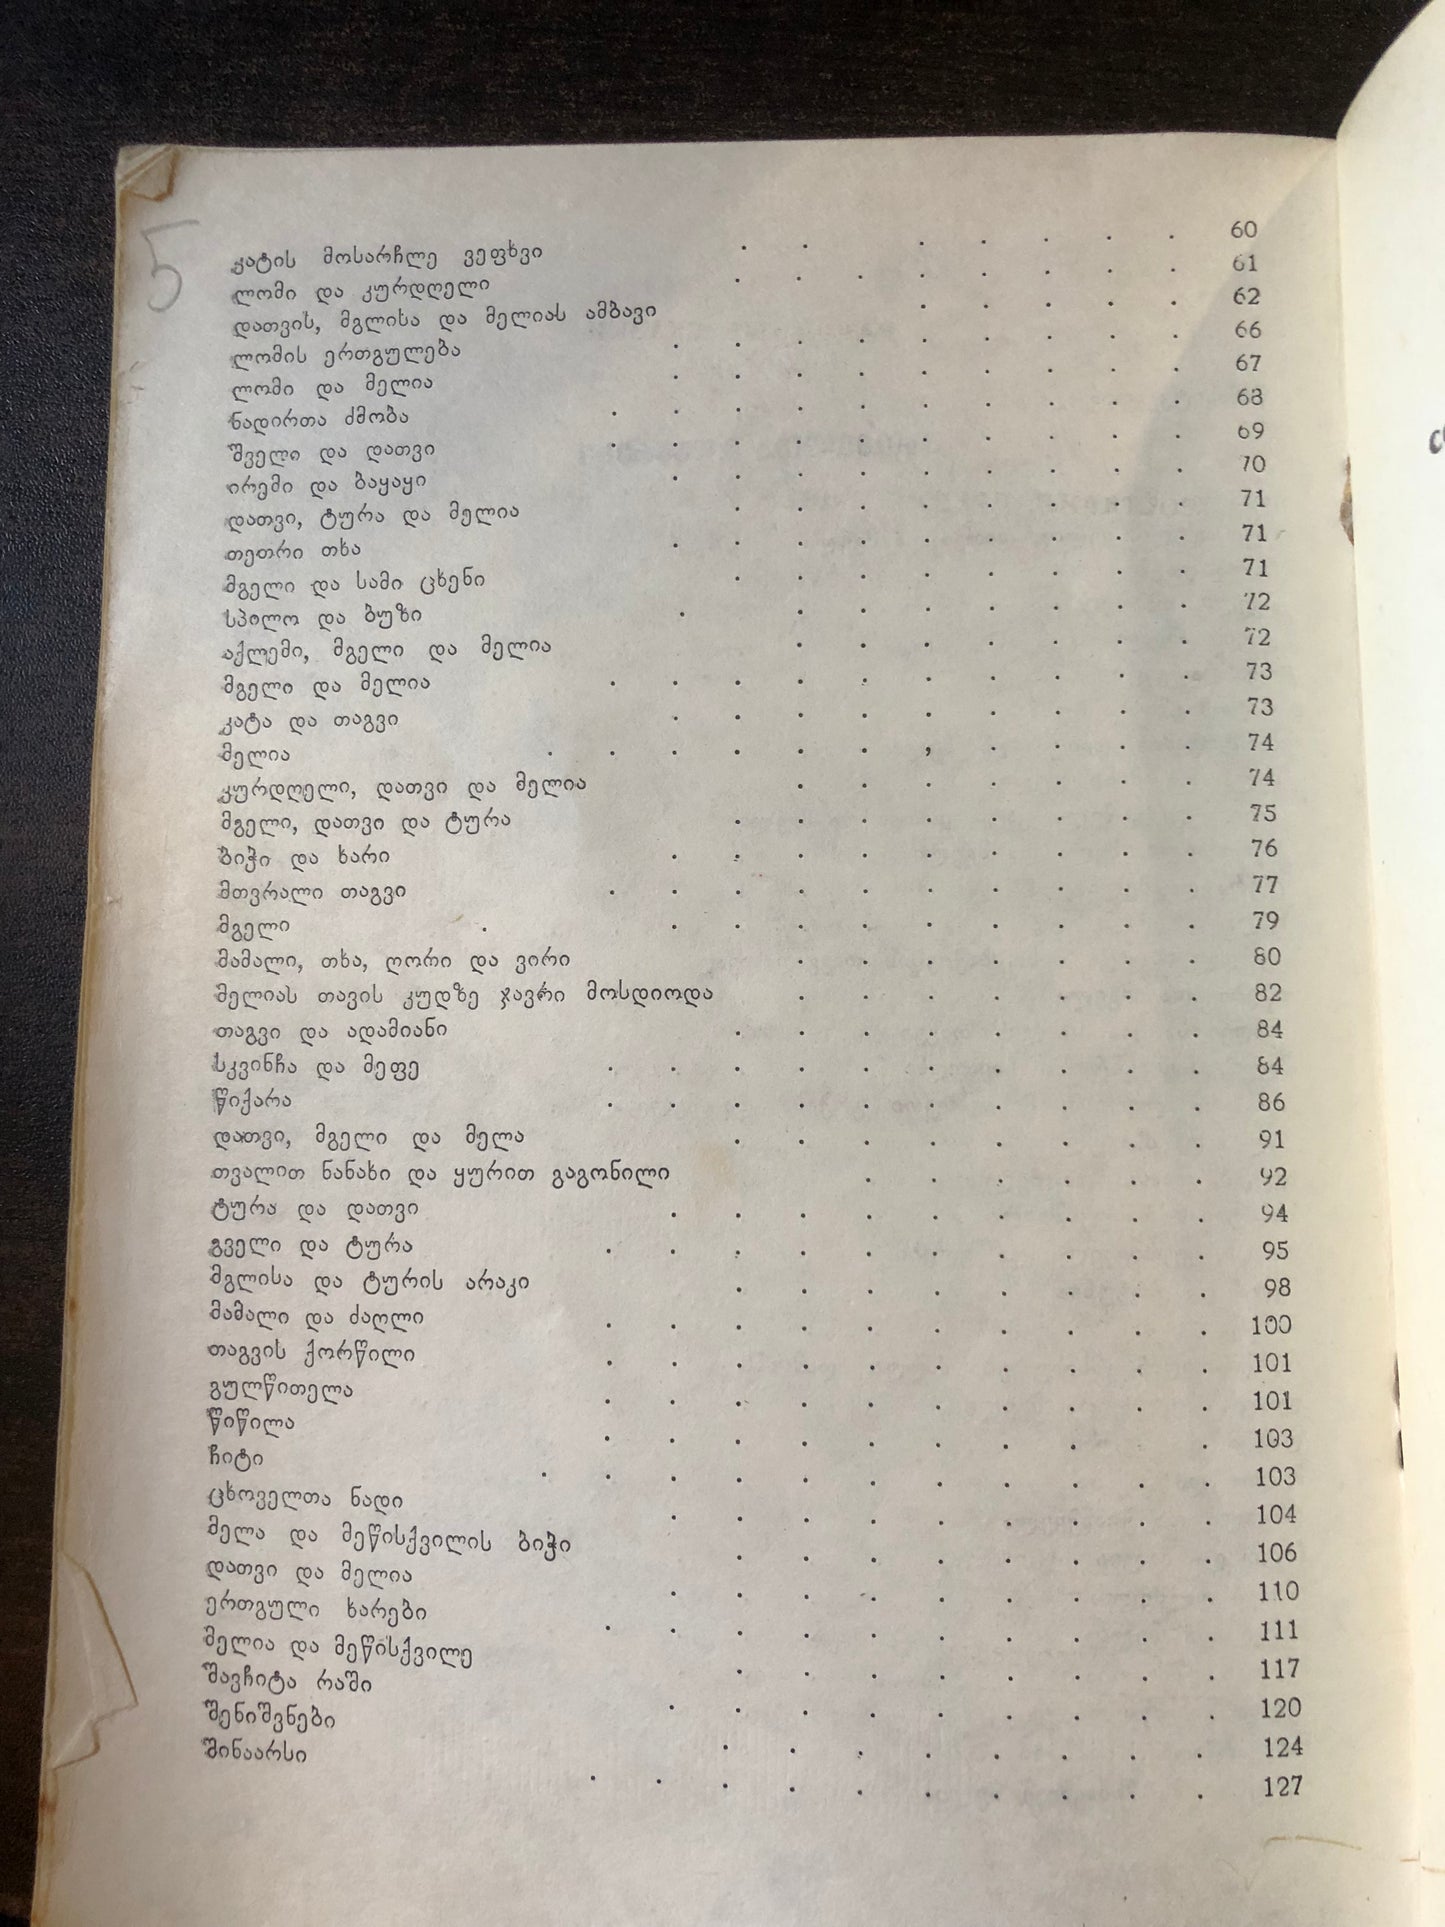 5
კატის მოსარჩლე ვეფხვი . . . . . . . 60
ლომი და კურდღელი . . . . . . . . 61
დათვის, მგლისა და მელიას ამბავი . . . . . 62
ლომის ერთგულება . . . . . . . . . 66
ლომი და მელია . . . . . . . . . 67
ნადირთა ძმობა . . . . . . . . . . 68
შველი და დათვი . . . . . . . . . . 69
ირემი და ბაყაყი . . . . . . . . . 70
დათვი, ტურა და მელია . . . . . . . . 71
თეთრი თხა . . . . . . . . . 71
მგელი და სამი ცხენი . . . . . . . . 71
სპილო და ბუზი . . . . . . . . 72
აქლემი, მგელი და მელია . . . . . . . 72
მგელი და მელია . . . . . . . . . . 73
კატა და თაგვი . . . . . . . . . 73
მელია . . . . . . , . . . . 74
კურდღელი, დათვი და მელია . . . . . . . 74
მგელი, დათვი და ტურა . . . . . . . . 75
ბიჭი და ხარი . . . . . . . . . 76
მთვრალი თაგვი . . . . . . . . . . 77
მგელი . . . . . . . . . . 79
მამალი, თხა, ღორი და ვირი . . . . . . . 80
მელიას თავის კუდზე ჯავრი მოსდიოდა . . . . . . . 82
თაგვი და ადამიანი . . . . . . . . 84
სკვინჩა და მეფე . . . . . . . . . . 84
წიქარა . . . . . . . . . . 86
დათვი, მგელი და მელა . . . . . . . . 91
თვალით ნანახი და ყურით გაგონილი . . . . . . 92
ტურა და დათვი . . . . . . . . . 94
გველი და ტურა . . . . . . . . . . 95
მგლისა და ტურის არაკი . . . . . . . . 98
მამალი და ძაღლი . . . . . . . . . . 100
თაგვის ქორწილი . . . . . . . . . . 101
გულწითელა . . . . . . . . . . 101
წიწილა . . . . . . . . . 103
ჩიტი . . . . . . . . . . . 103
ცხოველთა ნადი . . . . . . . . . 104
მელა და მეწისქვილის ბიჭი . . . . . . . . 106
დათვი და მელია . . . . . . . . . 110
ერთგული ხარები . . . . . . . . . . 111
მელია და მეწისქვილე . . . . . . . . 117
შავჩიტა რაში . . . . . . . . . 120
შენიშვნები . . . . . . . . 124
შინაარსი . . . . . . . . . . 127